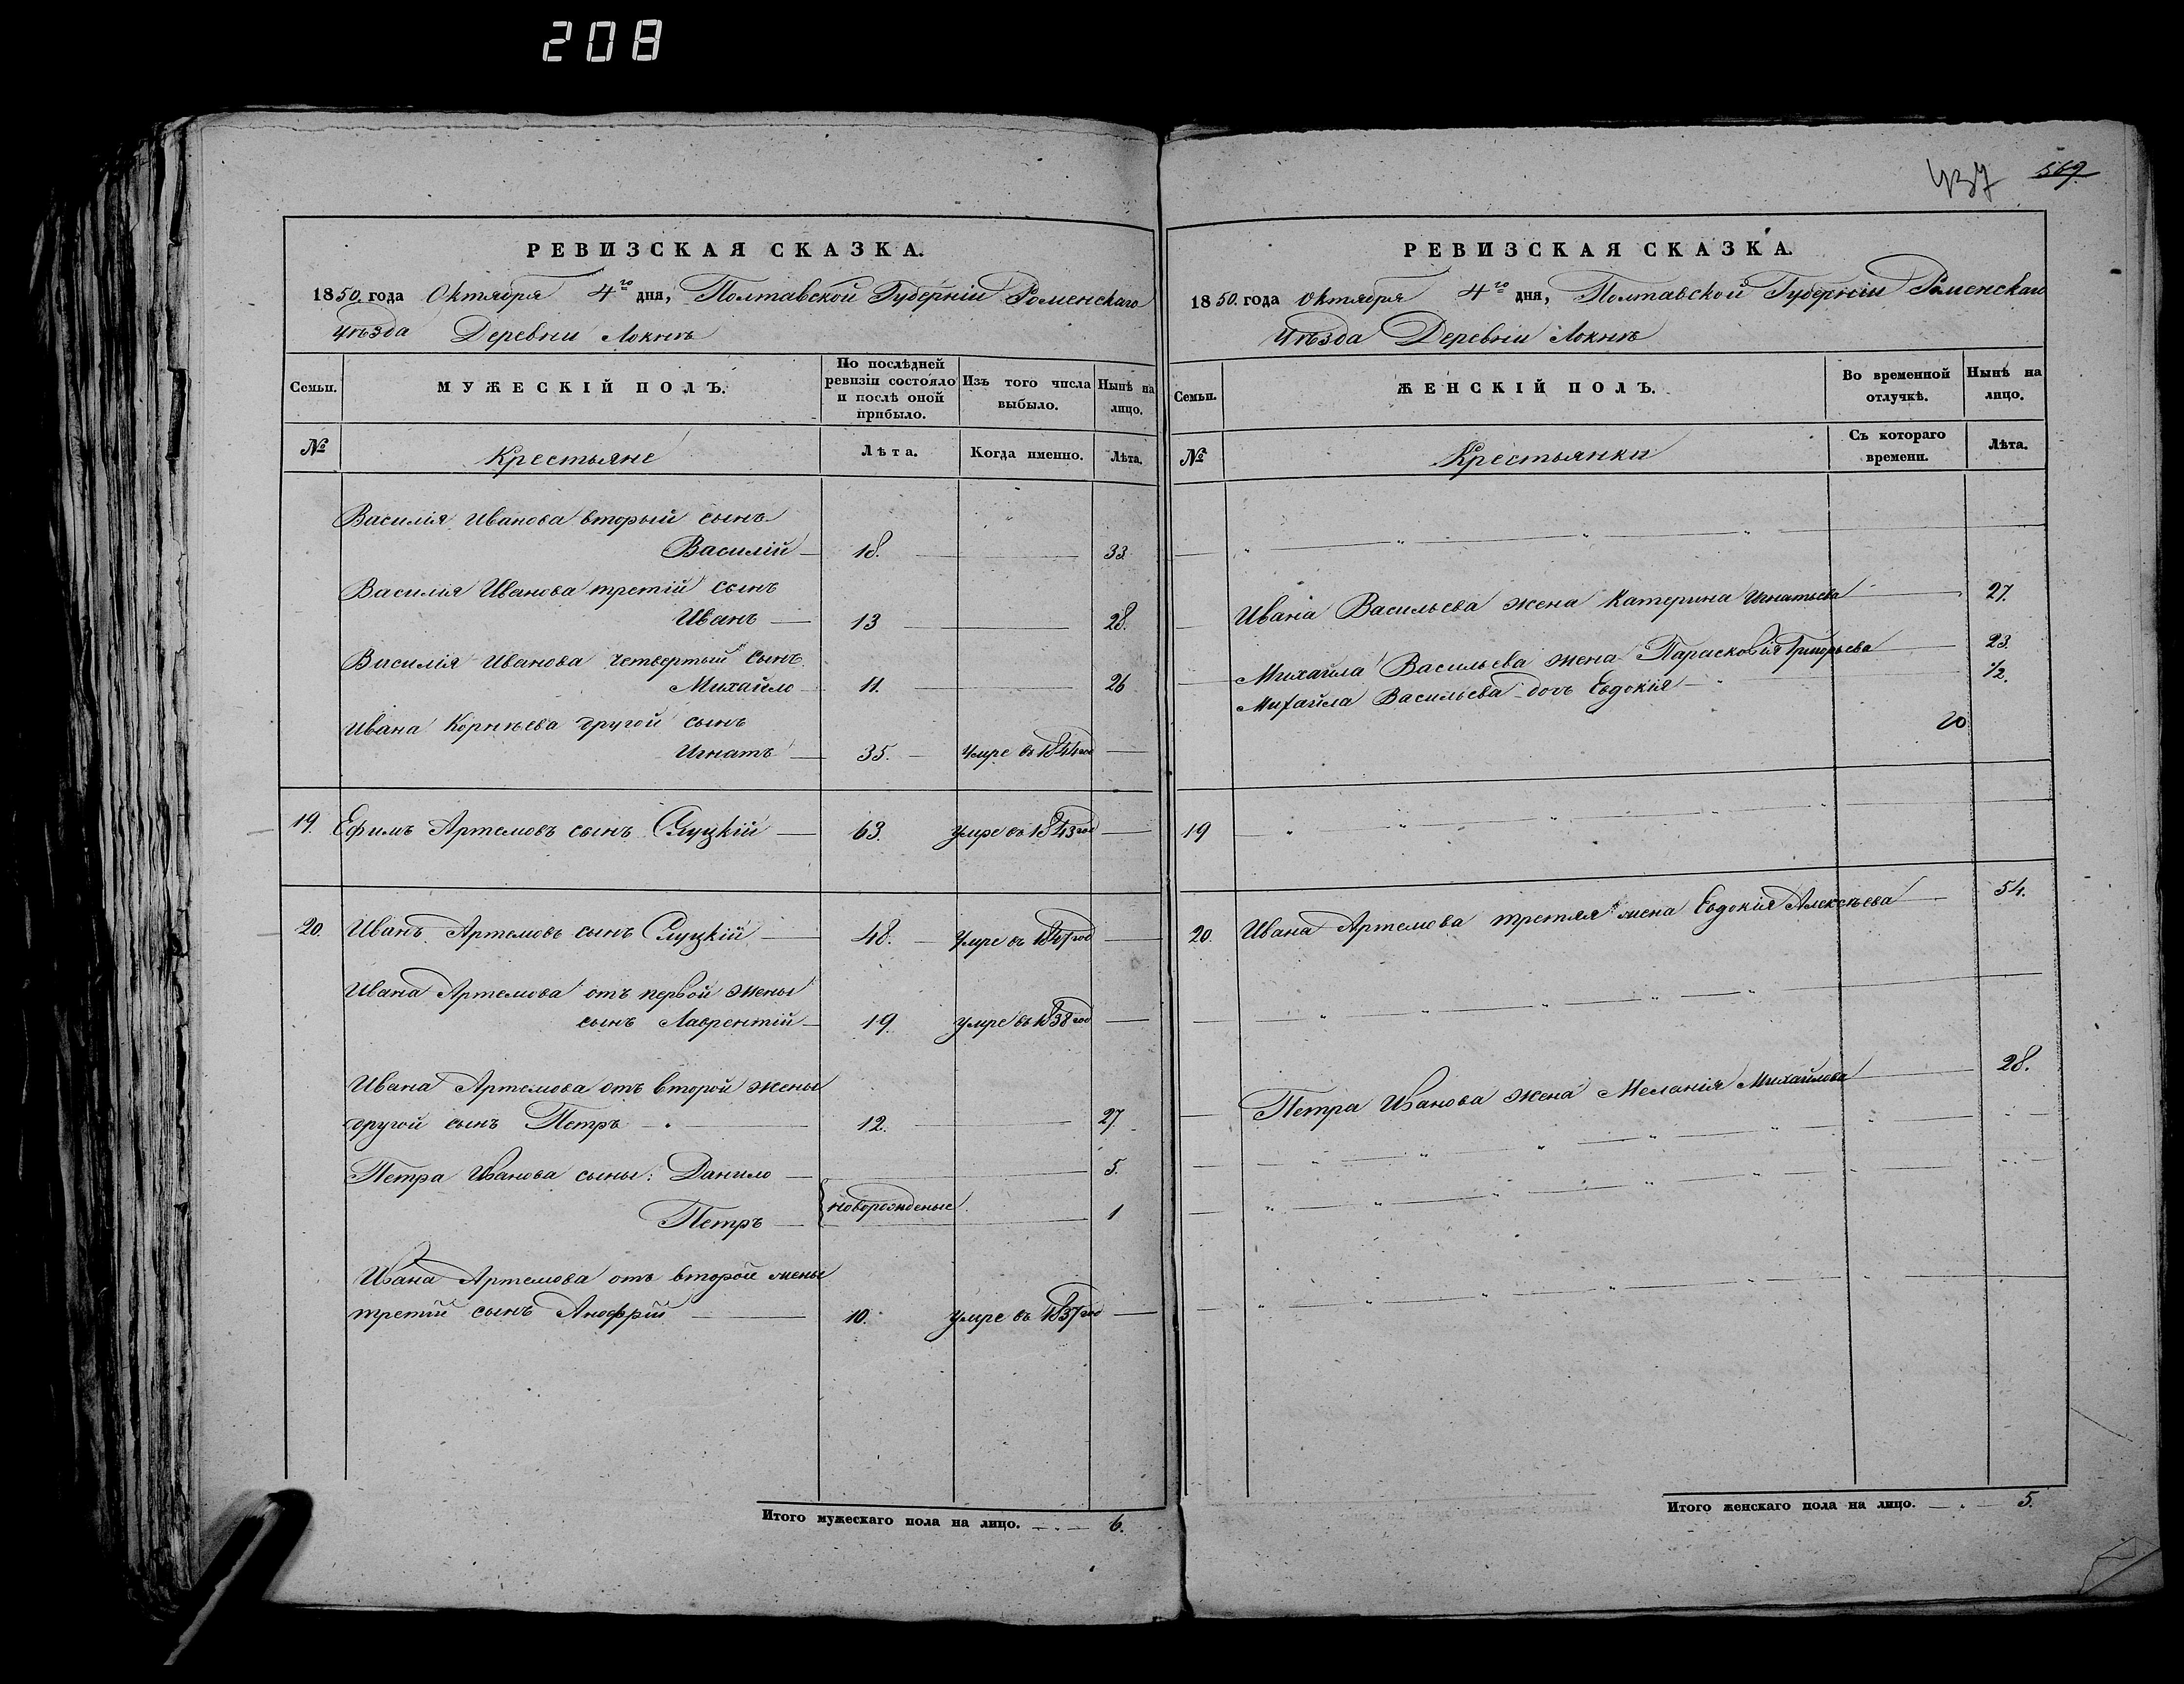 208
437 569.
РЕВИЗСКАЯ СКАЗКА.
1850. года Октября 4го дня, Полтавской Губерніи Роменскаго
Уѣзда Деревни Локнѣ
Семьи. МУЖЕСКІЙ ПОЛЪ. По послѣдней ревизіи состояло и послѣ оной прибыло. Изъ того числа выбыло. Нынѣ на лицо.
№ Крестьяне Лѣта. Когда именно. Лѣта.
Василія Иванова вторый сынъ
Василій 18. 33
Василия Иванова третій сынъ
Иванъ 13 28.
Василія Иванова четвертый сынъ
Михайло 11. 26
Ивана Корнѣева другой сынъ
Игнатъ 35. Умре въ 1844 год
19. Ефимъ Артемовъ сынъ Слуцкій 63. Умре въ 1843 год
20. Иванъ Артемовъ сынъ Слуцкій 48. Умре въ 1847 год
Ивана Артемова отъ первой жены
сынъ Лаврентій 19. Умре въ 1838 год
Ивана Артемова отъ второй жены
другой сынъ Петръ 12. 27
Петра Иванова сыны: Данило 5.
новорожденые
Петръ 1
Ивана Артемова отъ второй жены
третій сынъ Анофрій 10. Умре въ 1837 год
Итого мужескаго пола на лицо. 6.
РЕВИЗСКАЯ СКАЗКА.
1850. года Октября 4го дня, Полтавской Губерніи Роменскаго
Уѣзда Деревни Локнѣ
Семьи. ЖЕНСКІЙ ПОЛЪ. Во временной отлучкѣ. Нынѣ на лицо.
№ Крестьянки Съ котораго времени. Лѣта.
Ивана Васильева жена Катерина Игнатьева 27.
Михайла Васильева жена Парасковія Григорьева 23.
Михайла Васильева дочь Евдокія 1/2.
20
19
20. Ивана Артемова третяя жена Евдокія Алексѣева 54.
Петра Иванова жена Меланія Михайлова 28.
Итого женскаго пола на лицо. 5.